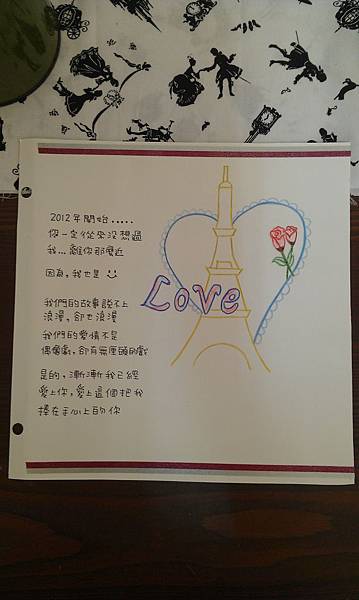 2012年開始.....
你一定從來沒想過
我...離你那麼近
因為,我也是
我們的故事說不上
浪漫,卻也浪漫
我們的愛情不是
偶像劇,卻有無厘頭的戲
是的,漸漸我已經
愛上你,愛上這個把我
捧在手心上的你
Love